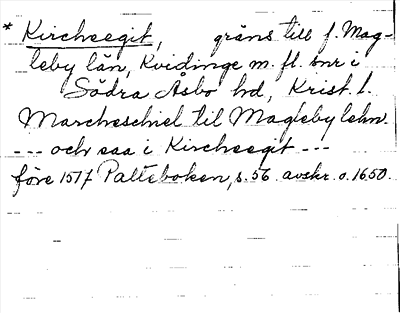 * Kircheegit, gräns till f. Mag-
leby län, Kvidinge m. fl. snr i
Södra Åsbo hd, Krist. l.
Marcheschiel til Magleby lehn
--- och saa i Kircheegit ---
före 1517 Palteboken, s. 56. avskr. o. 1650.